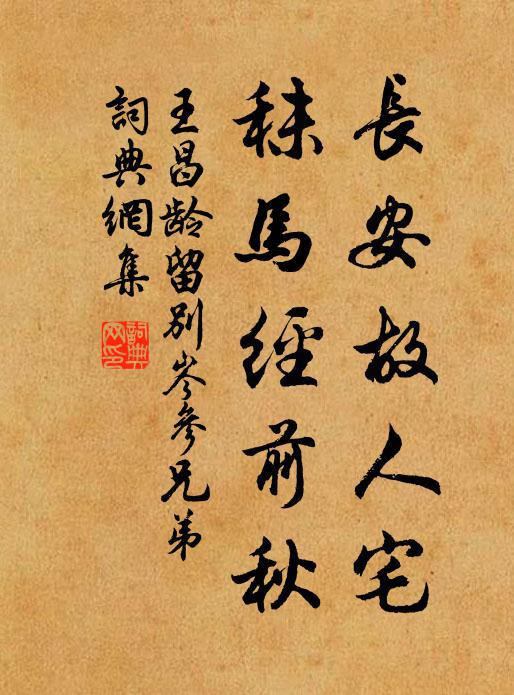 長安故人宅
秣馬經前秋
王昌齡留別岑參兄弟
詞典網集
詞典
网印